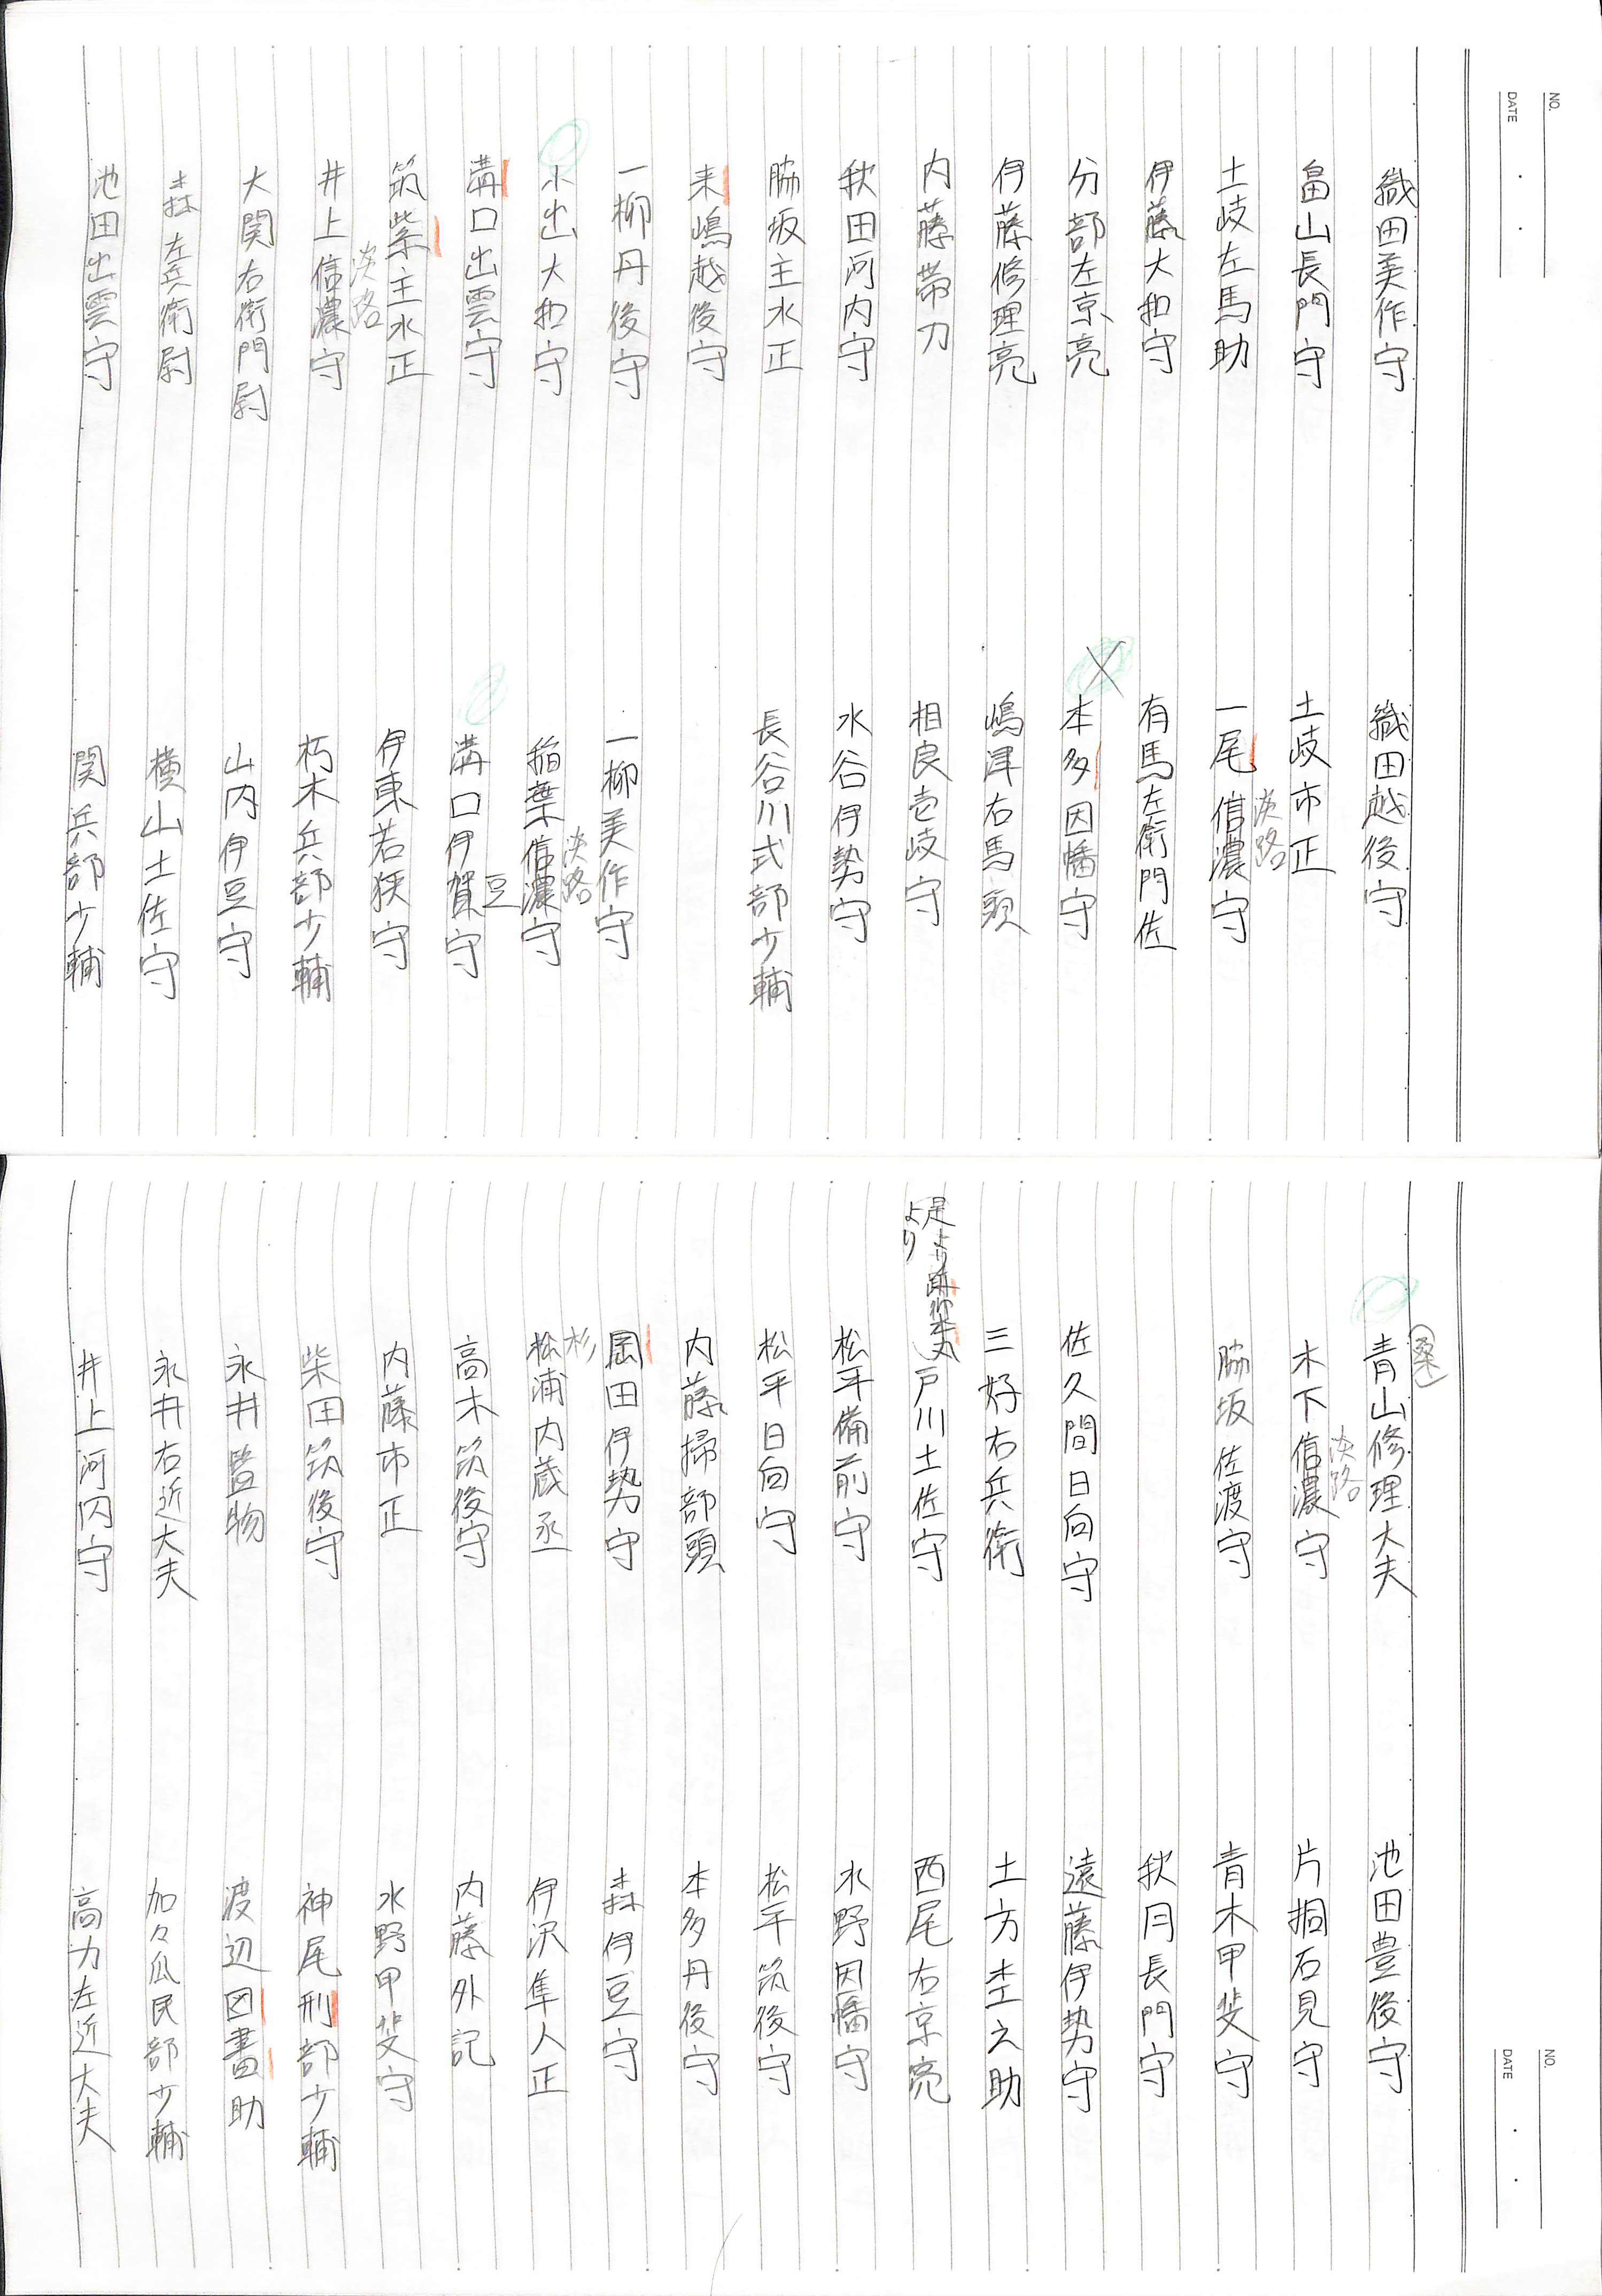 NO.
DATE
織田美作守　織田越後守
畠山長門守　土岐市正
土岐左馬助　一尾信濃守
淡路
伊藤大和守　有馬左衛門佐
分部左京亮　本多因幡守
伊藤修理亮　嶋津右馬頭
内藤帯刀　相良壱岐守
秋田河内守　水谷伊勢守
脇坂主水正　長谷川式部少輔
来嶋越後守
一柳丹後守　一柳美作守
淡路
小出大和守　稲葉信濃守
豆
溝口出雲守　溝口伊賀守
筑紫主水正　伊東若狭守
淡路
井上信濃守　朽木兵部少輔
大関右衛門尉　山内伊豆守
森左兵衛尉　横山土佐守
池田出雲守　関兵部少輔
NO.
DATE
(桑)
青山修理大夫　池田豊後守
淡路
木下信濃守　片桐石見守
脇坂佐渡守　青木甲斐守
秋月長門守
佐久間日向守　遠藤伊勢守
三好右兵衛　土方杢之助
是より
より
戸川土佐守　西尾右京亮
松平備前守　水野因幡守
松平日向守　松平筑後守
内藤掃部頭　本多丹後守
岡田伊勢守　森伊豆守
杉
松浦内蔵丞　伊沢隼人正
高木筑後守　内藤外記
内藤市正　水野甲斐守
柴田筑後守　神尾刑部少輔
永井監物　渡辺図書助
永井右近大夫　加々爪民部少輔
井上河内守　高力左近大夫